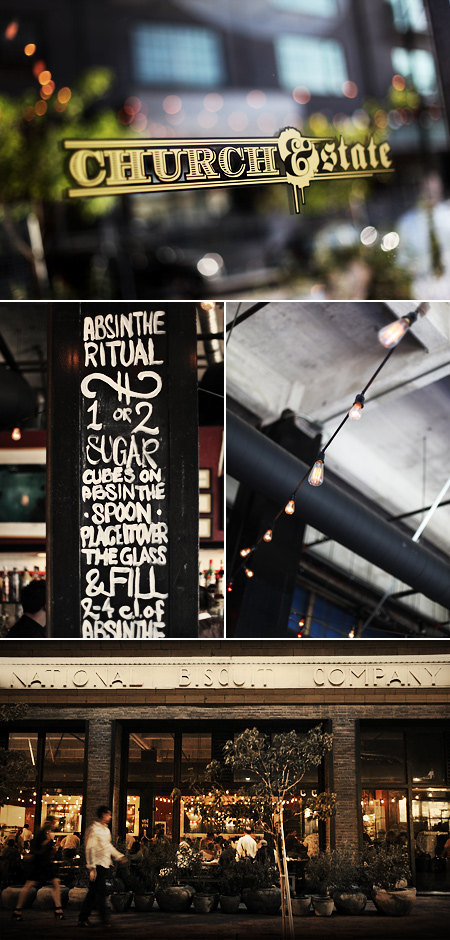 CHURCH & State
ABSINTHE
RITUAL
1 OR 2
SUGAR
CUBES ON
ABSINTHE
· SPOON ·
PLACE IT OVER
THE GLASS
& FILL
2-4 cl. of
ABSINTHE
NATIONAL BISCUIT COMPANY